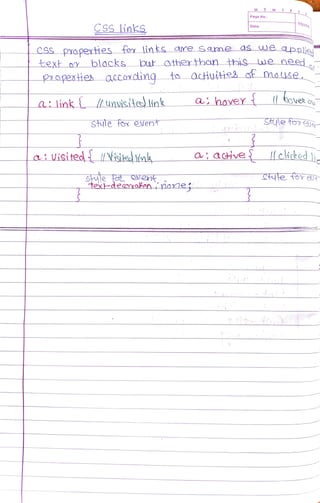 M T W T F S
Page No.:
Date:
CSS links
CSS properties for links are same as we applied
text or blocks but otherthan this we need
properties according to activities of mouse.
a: link { //unvisited link a: hover { // hover
style for event style for
} }
a: visited { //Visited link a: active { // clicked
style for event style for
text-decoration: none;
} }